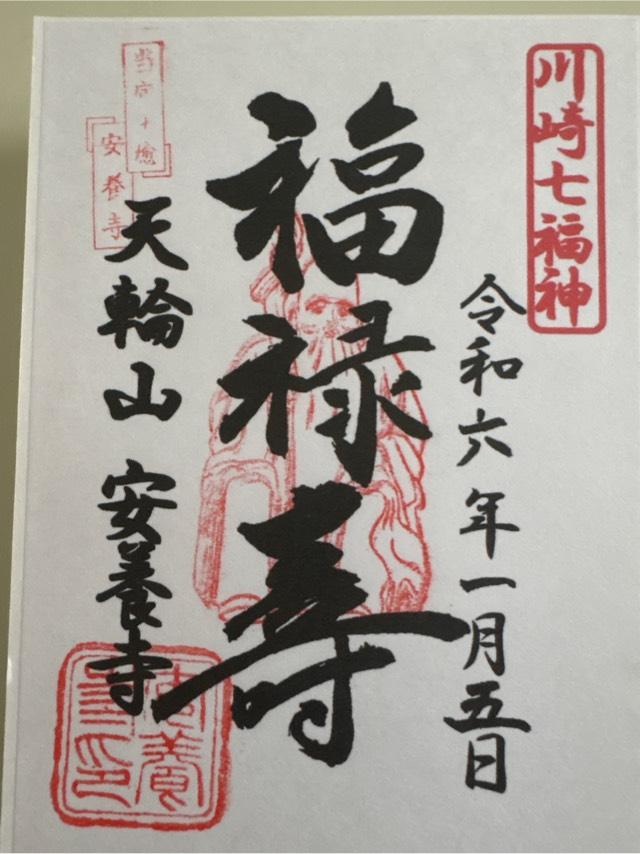 川崎七福神
令和六年一月五日
福禄寿
天輪山 安養寺
安養寺
安養寺印